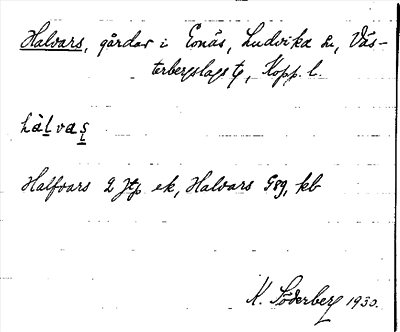 Halvars, gårdar i Eonäs, Ludvika sn, Väs-
terbergslags tg, Kopp. l.
hàlvaʂ
Halfvars 2 Jtp ek, Halvars Gsg, kb
K. Söderberg 1930.